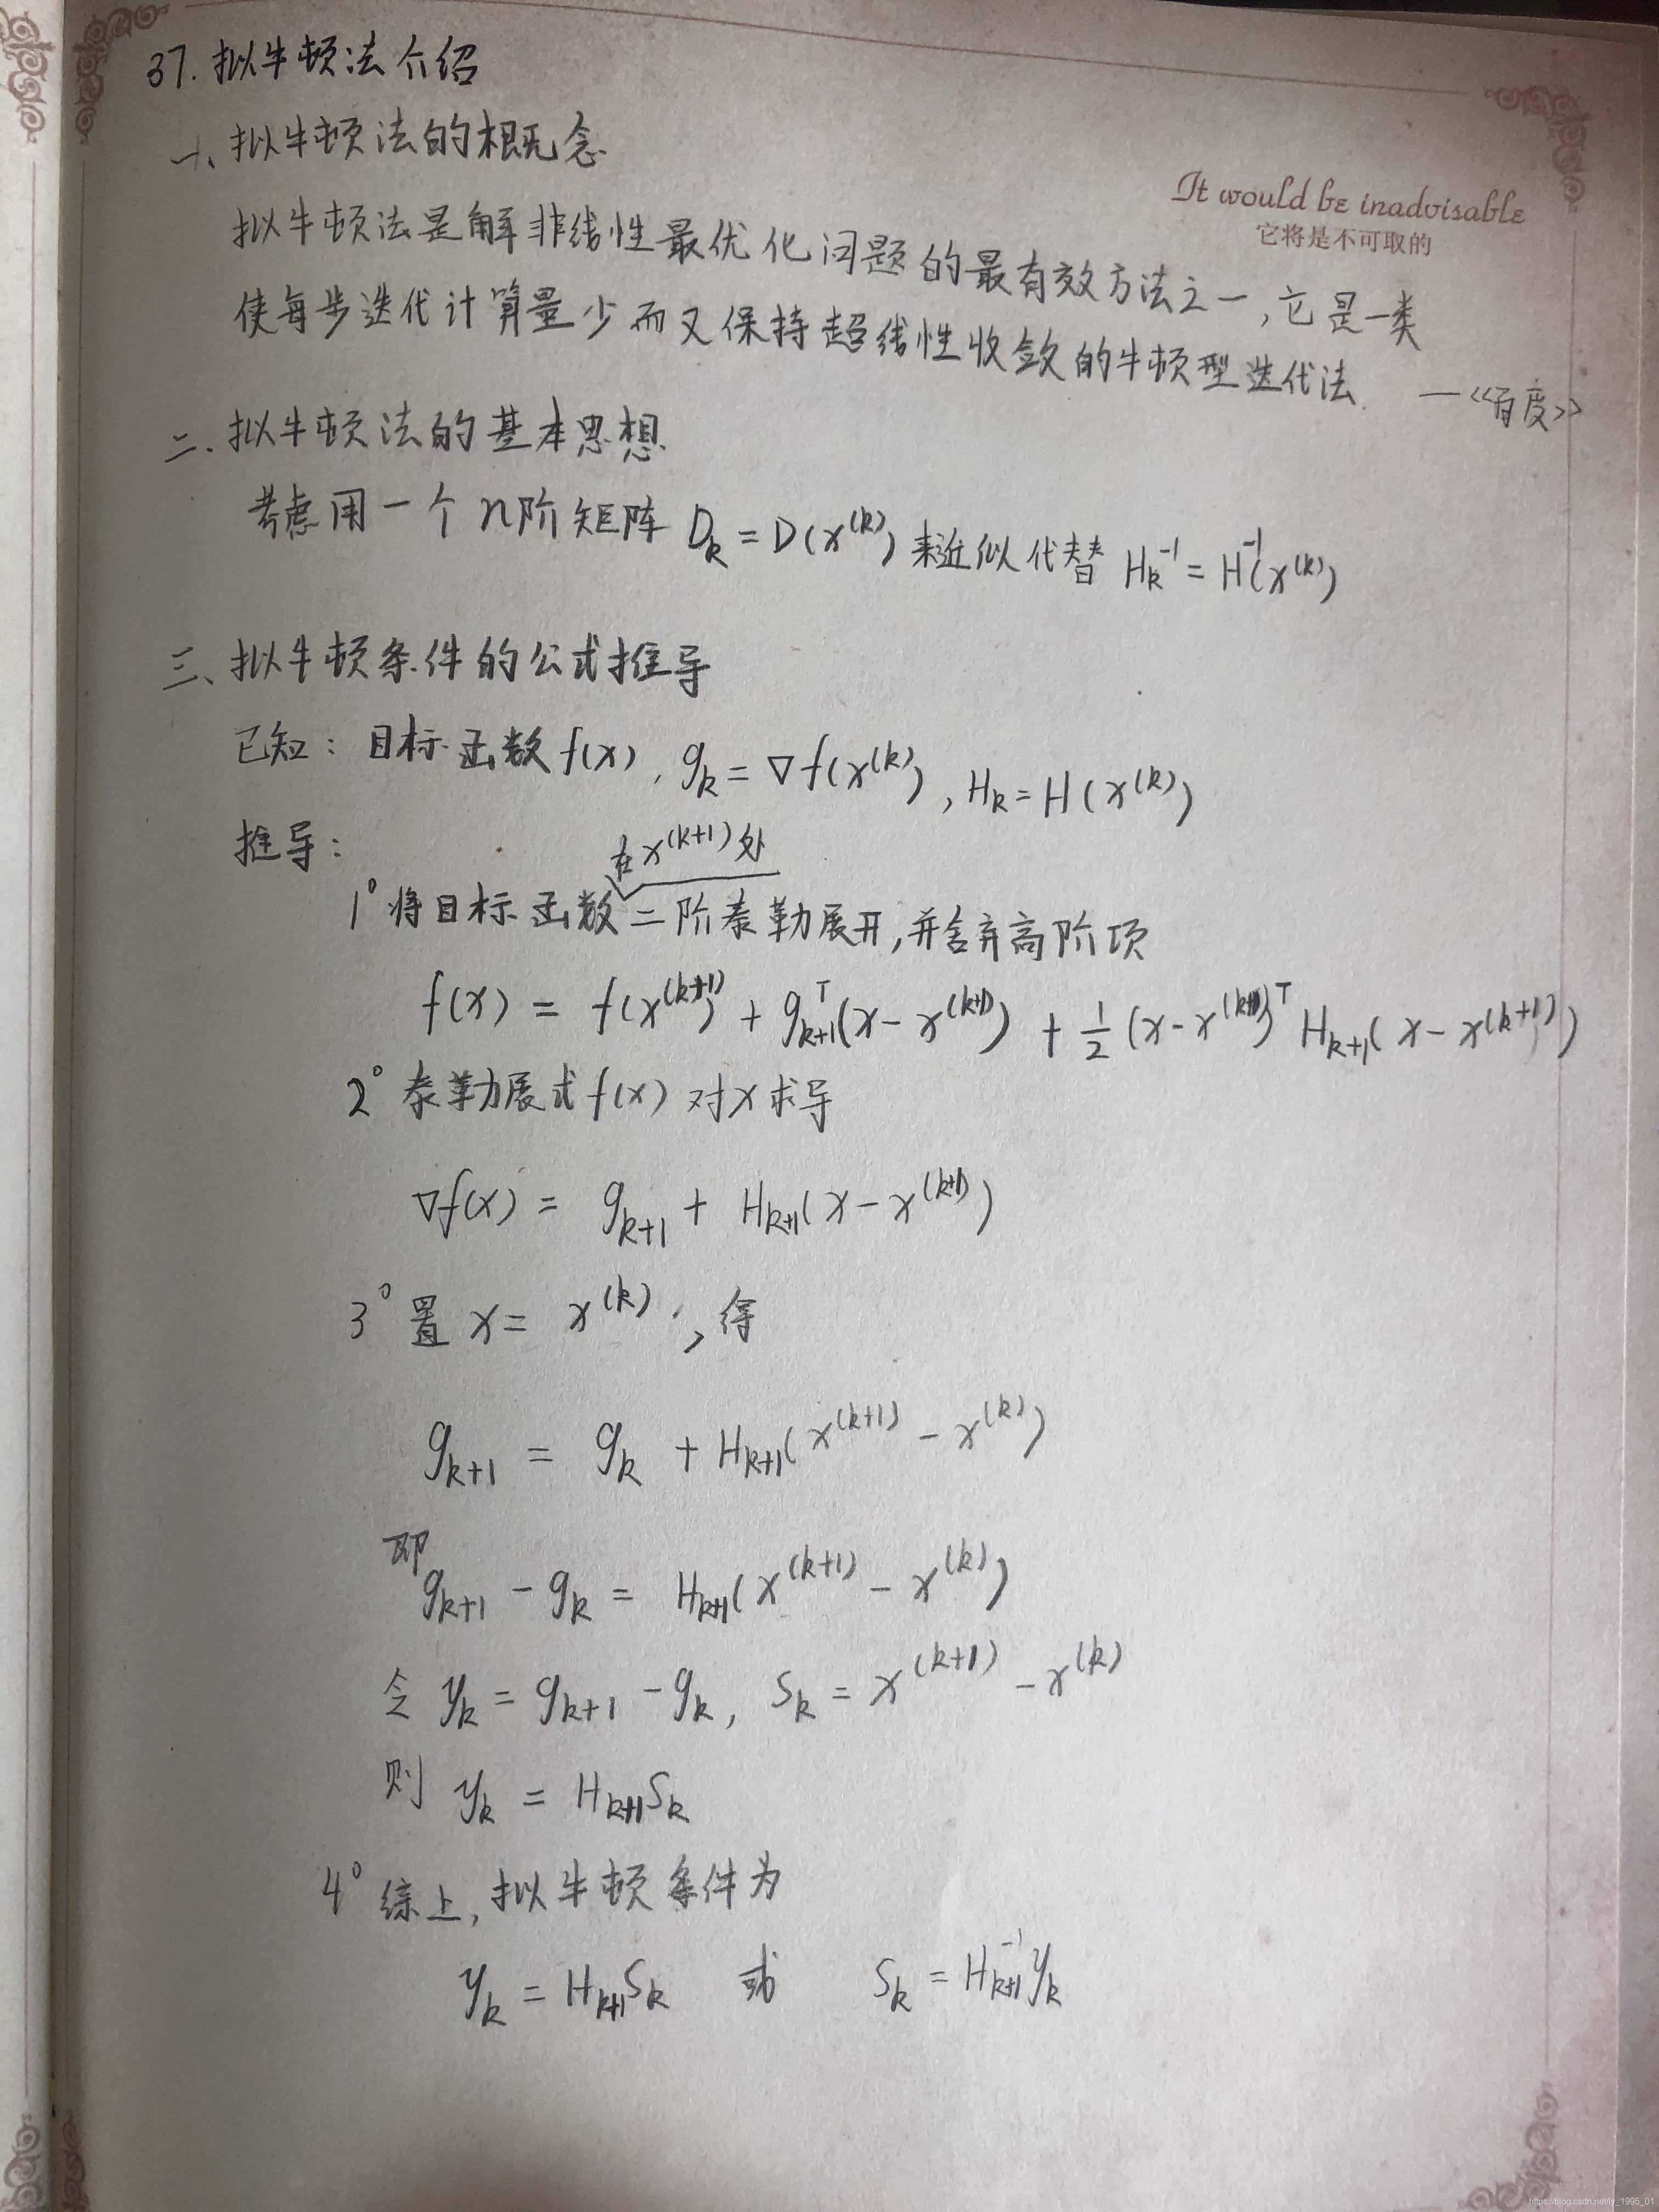 37. 拟牛顿法介绍
一、拟牛顿法的概念
It would be inadvisable
它将是不可取的
拟牛顿法是解非线性最优化问题的最有效方法之一,它是一类
使每步迭代计算量少而又保持超线性收敛的牛顿型迭代法. —《百度》
二、拟牛顿法的基本思想
考虑用一个n阶矩阵 D_k = D(x^(k)) 来近似代替 H_k^-1 = H^-1(x^(k))
三、拟牛顿条件的公式推导
已知: 目标函数 f(x), g_k = ∇f(x^(k)), H_k = H(x^(k))
推导:
在x^(k+1)处
1° 将目标函数二阶泰勒展开,并舍弃高阶项
f(x) = f(x^(k+1)) + g_k+1^T(x - x^(k+1)) + 1/2 (x - x^(k+1))^T H_k+1(x - x^(k+1))
2° 泰勒展式 f(x) 对x求导
∇f(x) = g_k+1 + H_k+1(x - x^(k+1))
3° 置 x = x^(k), 得
g_k+1 = g_k + H_k+1(x^(k+1) - x^(k))
即
g_k+1 - g_k = H_k+1(x^(k+1) - x^(k))
令 y_k = g_k+1 - g_k, S_k = x^(k+1) - x^(k)
则 y_k = H_k+1 S_k
4° 综上, 拟牛顿条件为
y_k = H_k+1 S_k 或 S_k = H_k+1^-1 y_k
https://blog.csdn.net/ly_1995_01